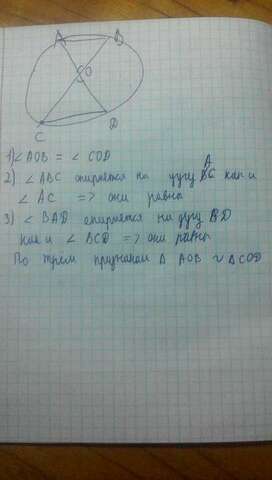 A B
O
C D
1) ∠AOB = ∠COD
2) ∠ABC опирается на дугу AC как и
∠AC => они равны
3) ∠BAD опирается на дугу BD
как и ∠BCD => они равны
По трём признакам Δ AOB ~ ΔCOD